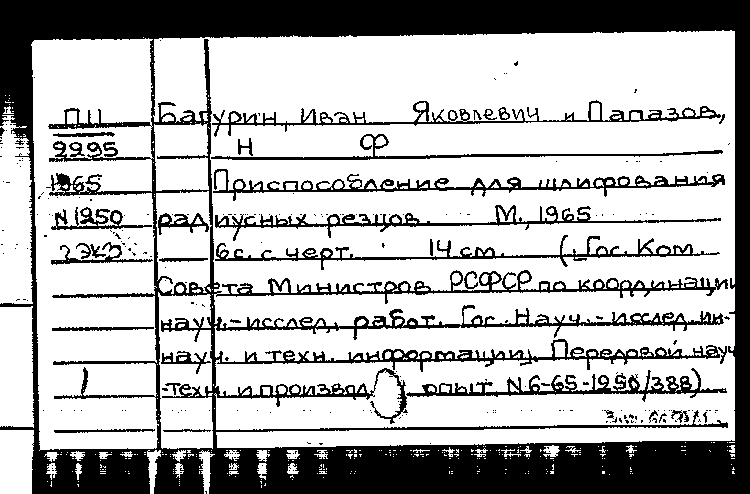 П11 Багурин, Иван Яковлевич и Папазов,
2295 Н Ф
1965 Приспособление для шлифования
N1250 радиусных резцов. М., 1965
2 экз 6 с. с черт. 14 см. (Гос. Ком.
Совета Министров РСФСР по координации
науч.-исслед. работ. Гос. Науч.-исслед. ин-т
науч. и техн. информации. Передовой науч.
1 -техн. и производ. опыт N6-65-1250/388)